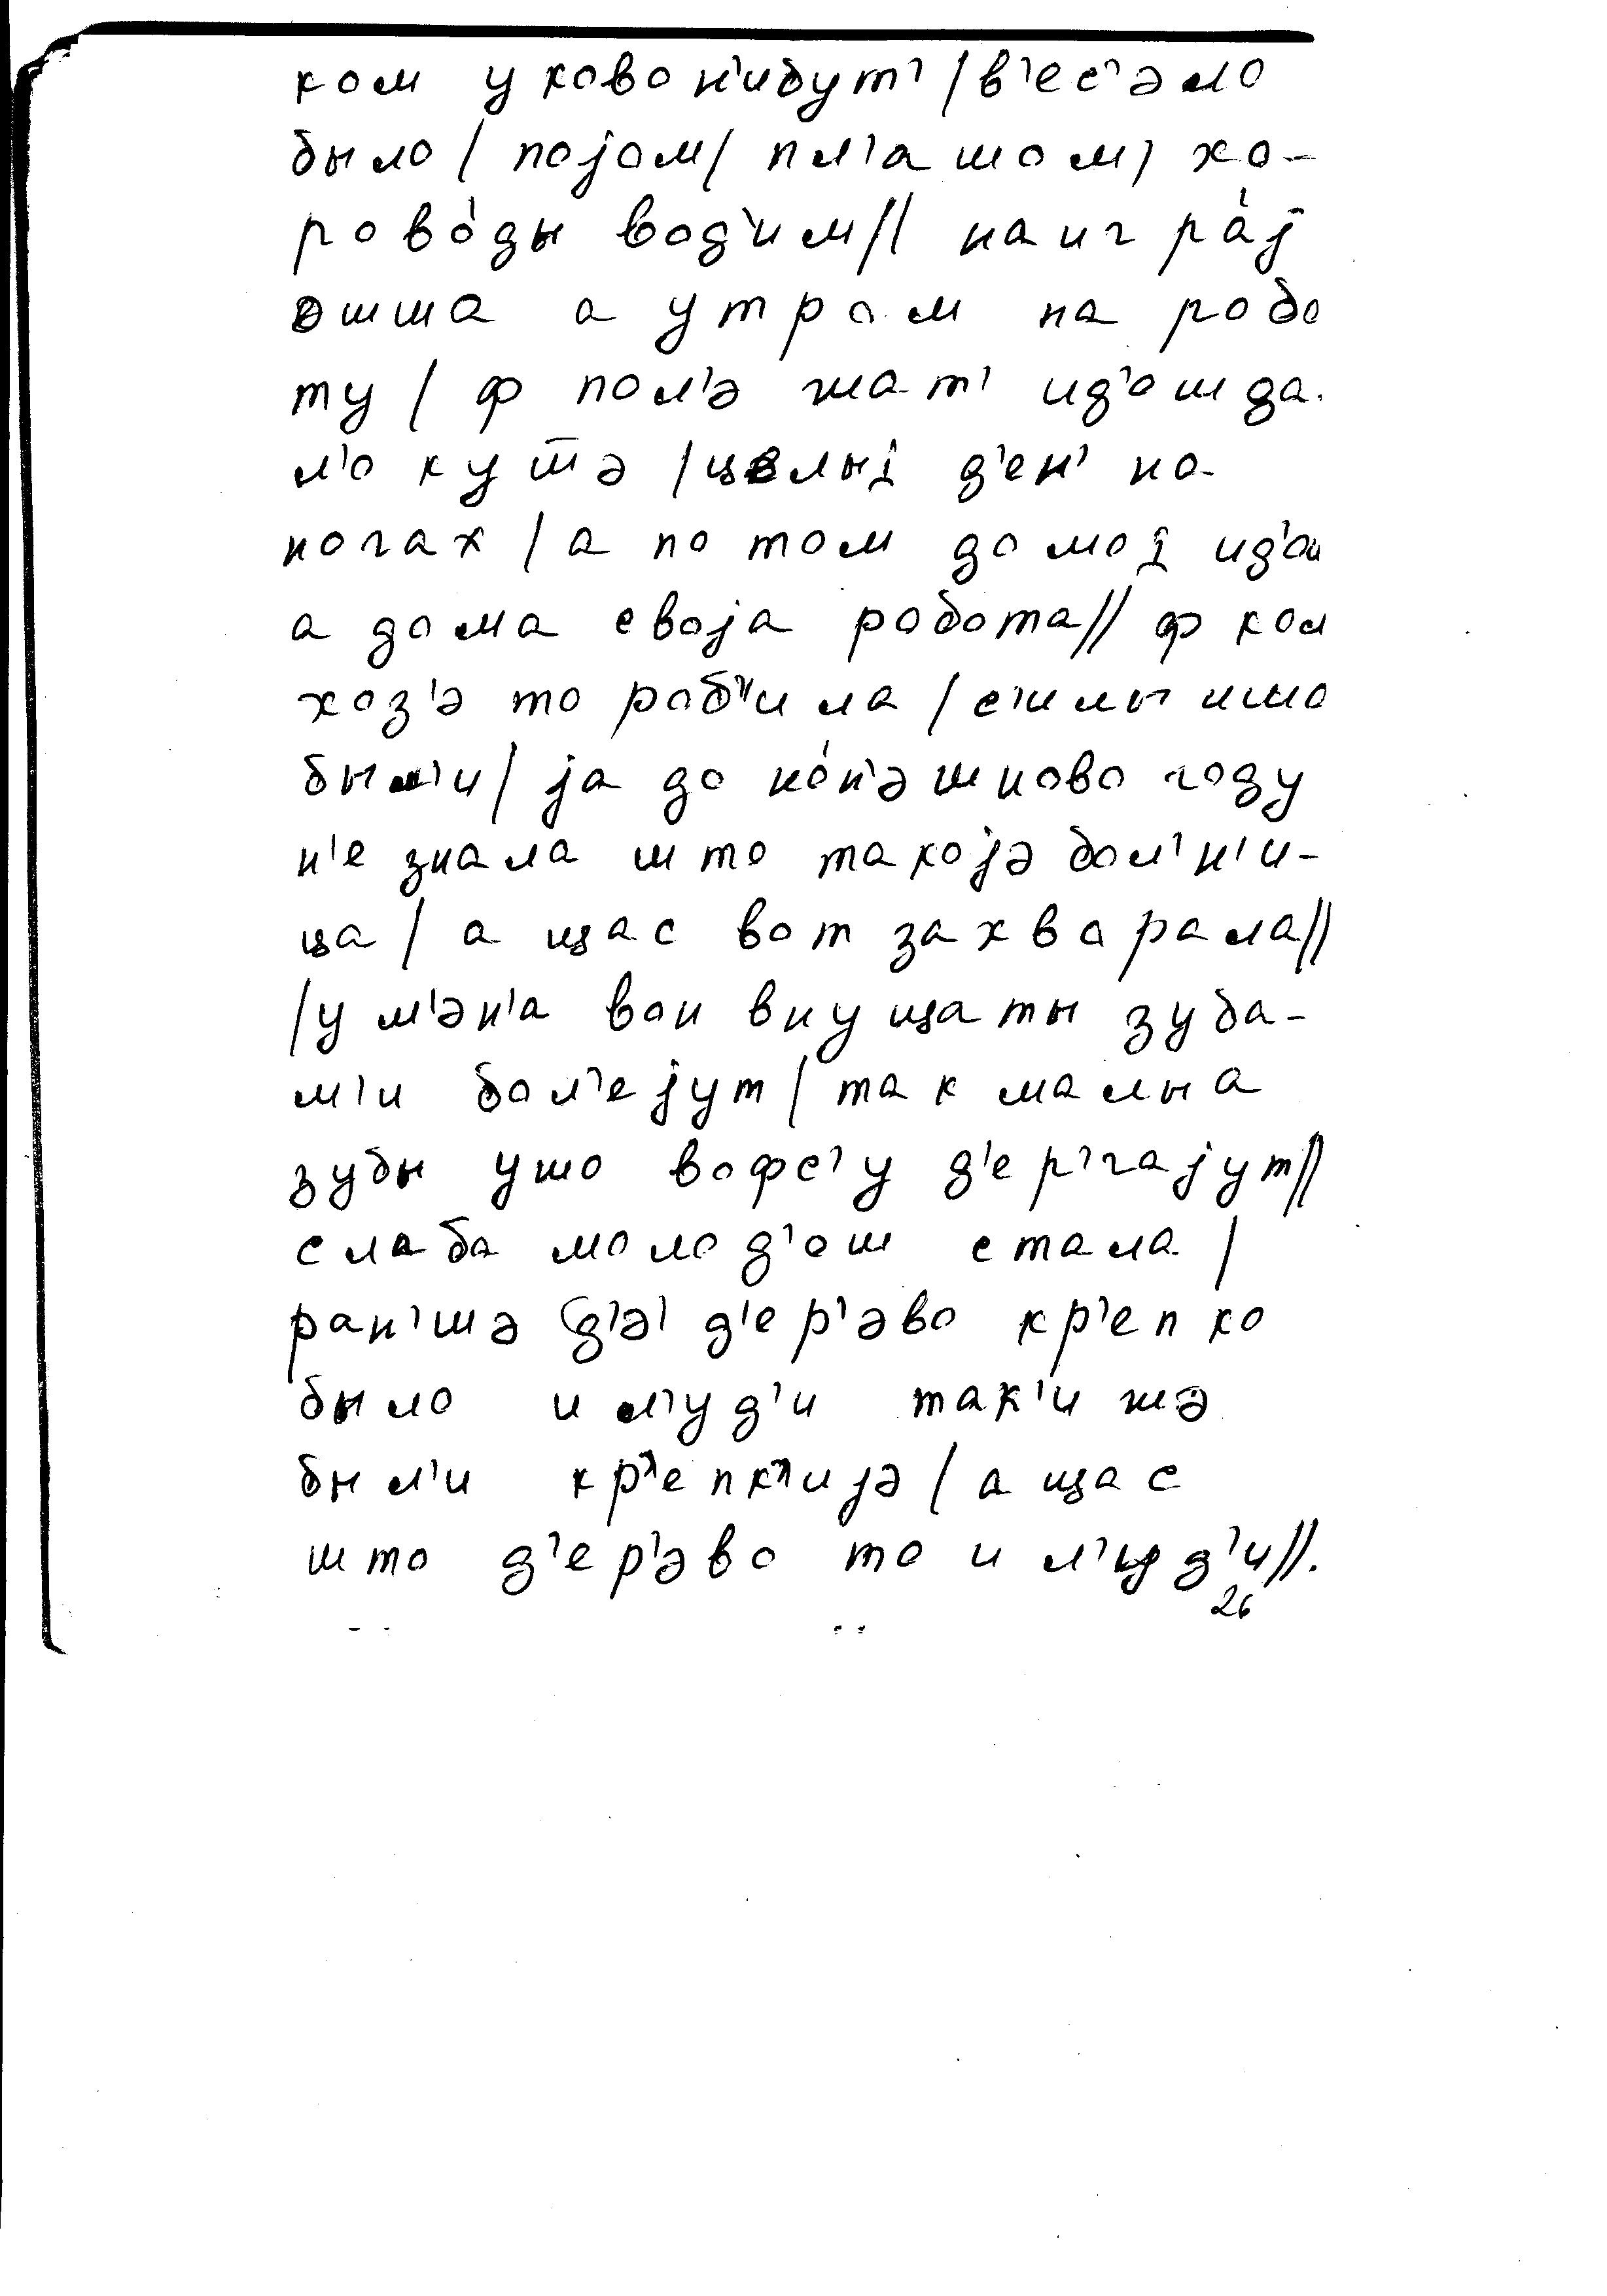 ком у ково н'ибут' / в'ес'əло
было / појом / пл'ашом / хо-
рово́ды вод'им // наигра́ј
əшша а утром на робо
ту / ф пол'ə жат' ид'ош да
л'окут̅ə / целыį д'ен' на
ногах / а потом домоį ид'ош
а дома својa робота // ф кол
хоз'ə то роб'ила / с'илы ишо
был'и / ја до но́н'əшново году
н'е знала што такојə бол'н'и-
ца / а щас вот захворала //
/ у м'əн'а вон внущаты зуба-
м'и бол'ејут / так малыа
зубы ушо вофс'у д'ер'гајут //
слаба молод'ош стала /
ран'шə (д'ə' д'ер'əво кр'епко
было и л'уд'и так'и жə
был'и кр'епк'ијə / а щас
што д'ер'əво то и л'уд'и //.
26